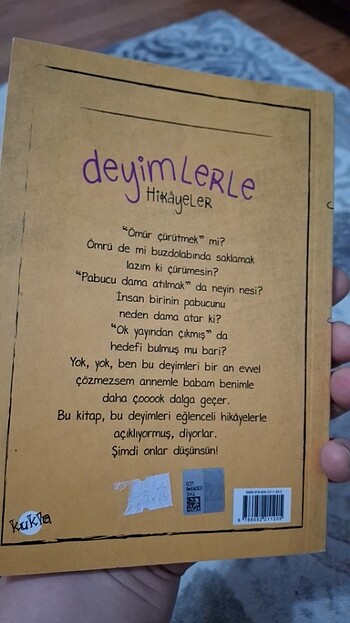 deyimlerle
Hikâyeler
"Ömür çürütmek" mi?
Ömrü de mi buzdolabında saklamak
lazım ki çürümesin?
"Pabucu dama atılmak" da neyin nesi?
İnsan birinin pabucunu
neden dama atar ki?
"Ok yayından çıkmış" da
hedefi bulmuş mu bari?
Yok, yok, ben bu deyimleri bir an evvel
çözmezsem annemle babam benimle
daha çooook dalga geçer.
Bu kitap, bu deyimleri eğlenceli hikâyelerle
açıklıyormuş, diyorlar.
Şimdi onlar düşünsün!
kukla